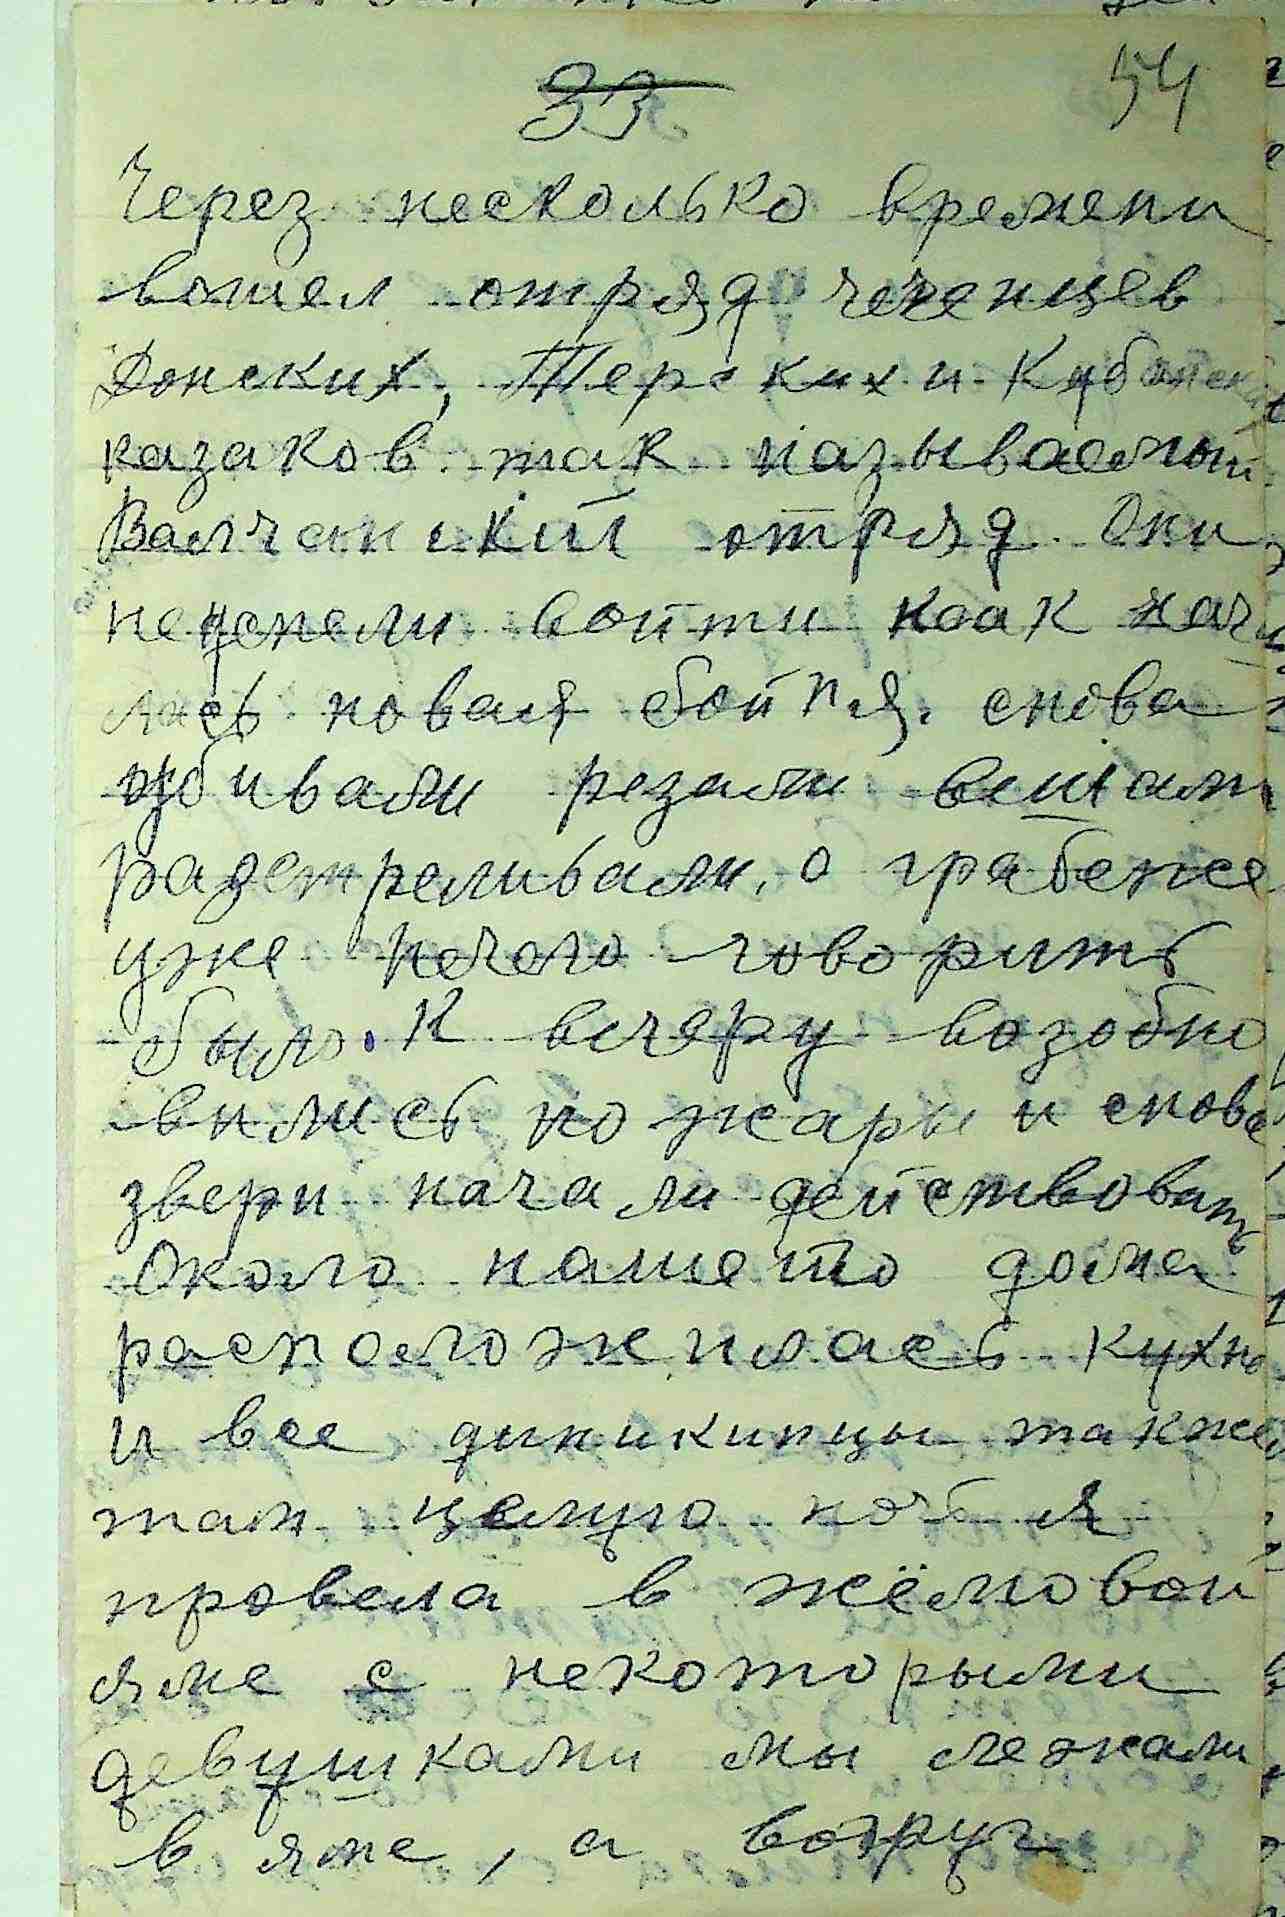 33
54
Через несколько времени
вошел отряд чеченцев
Донских, Терских и Кубанск
казаков так называемый
Волчанский отряд. Они
не успели войти как нач
лась новая бойня. снова
избивали резали вешали
разстреливали, о грабеже
уже нечего говорить
было. К вечеру возобно
вились пожары и снова
звери начали действовать
Около нашего дома
расположилась кухня
и все деникинцы также
там целую ночь я
провела в
яме с некоторыми
девушками мы лежали
в яме, а вокруг